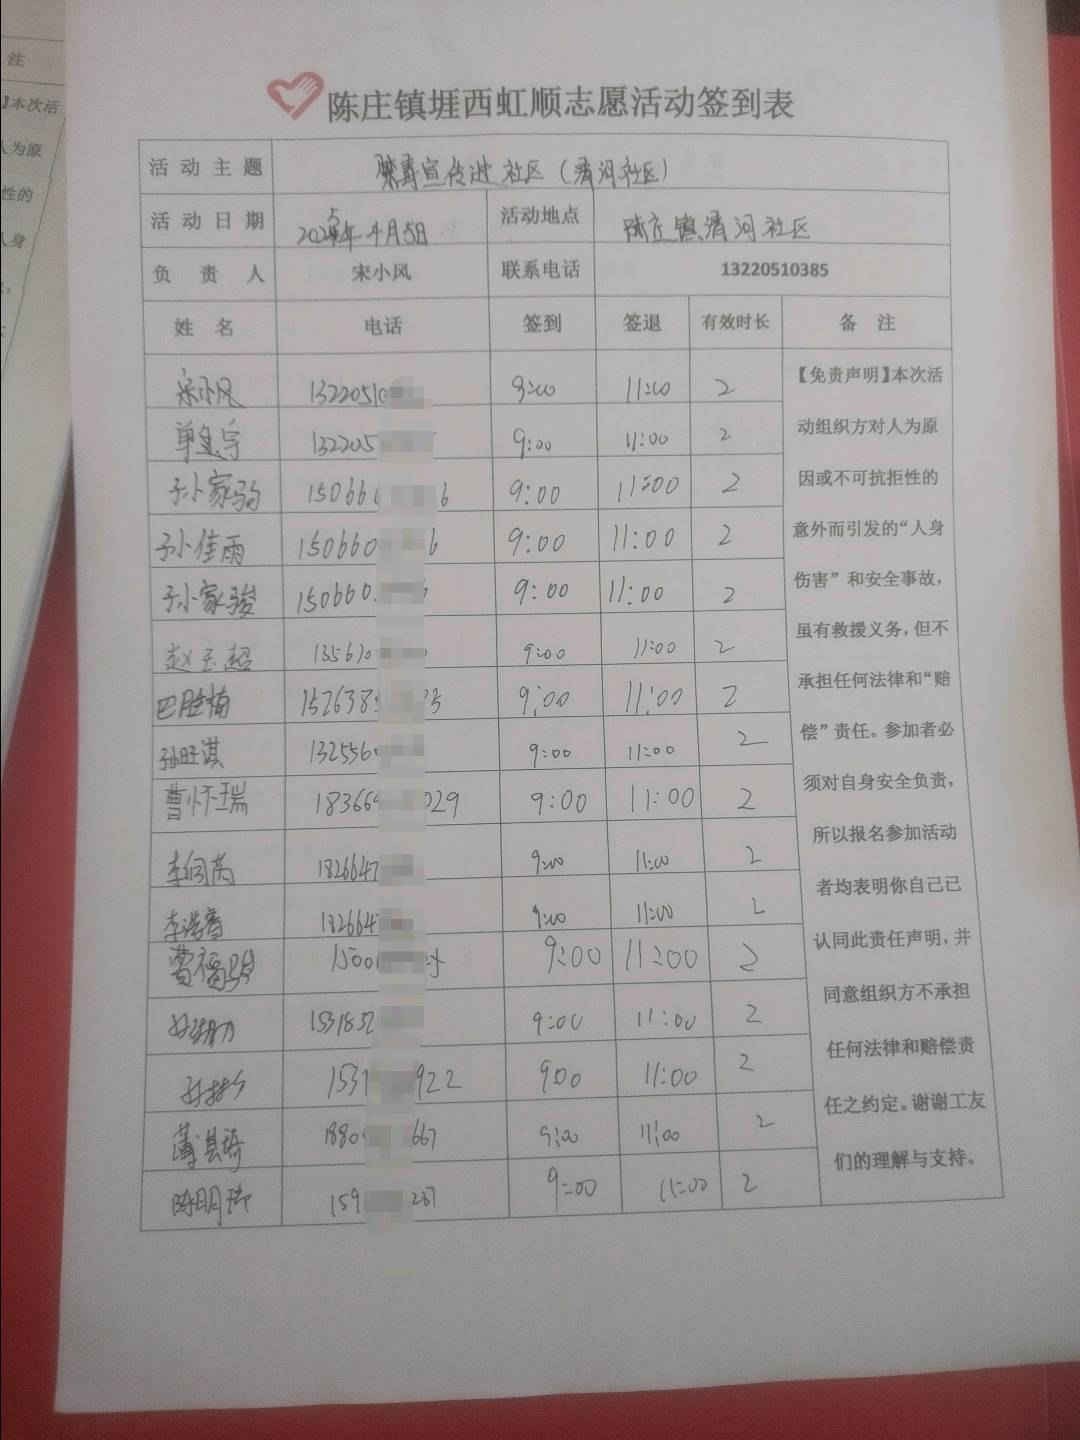 注
】本次活
人为原
性的
人身
陈庄镇埕西虹顺志愿活动签到表
活动主题 禁毒宣传进社区（清河社区）
活动日期 2025年4月5日 活动地点 陈庄镇清河社区
负责人 宋小风 联系电话 13220510385
姓名 电话 签到 签退 有效时长 备注
宋小风 13220510 9:00 11:00 2 【免责声明】本次活
132205 9:00 11:00 2 动组织方对人为原
孙家驹 15066 6 9:00 11:00 2 因或不可抗拒性的
孙佳雨 150660 6 9:00 11:00 2 意外而引发的“人身
孙家骏 150660 9:00 11:00 2 伤害”和安全事故，
赵玉超 135610 9:00 11:00 2 虽有救援义务，但不
巴胜楠 152638 5 9:00 11:00 2 承担任何法律和“赔
孙旺淇 132556 9:00 11:00 2 偿”责任。参加者必
曹怀瑞 18366 029 9:00 11:00 2 须对自身安全负责，
1826647 9:00 11:00 2 所以报名参加活动
李浩睿 182664 9:00 11:00 2 者均表明你自己已
曹福骏 1500 9:00 11:00 2 认同此责任声明，并
1531832 9:00 11:00 2 同意组织方不承担
1531 922 9:00 11:00 2 任何法律和赔偿责
薄其琦 1880 667 9:00 11:00 2 任之约定。谢谢工友
陈明玮 159 237 9:00 11:00 2 们的理解与支持。